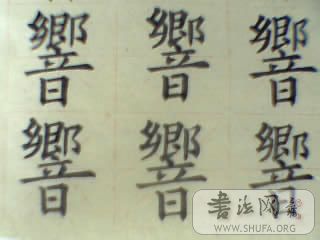 響響響
響響響
书法网
WWW.SHUFA.ORG